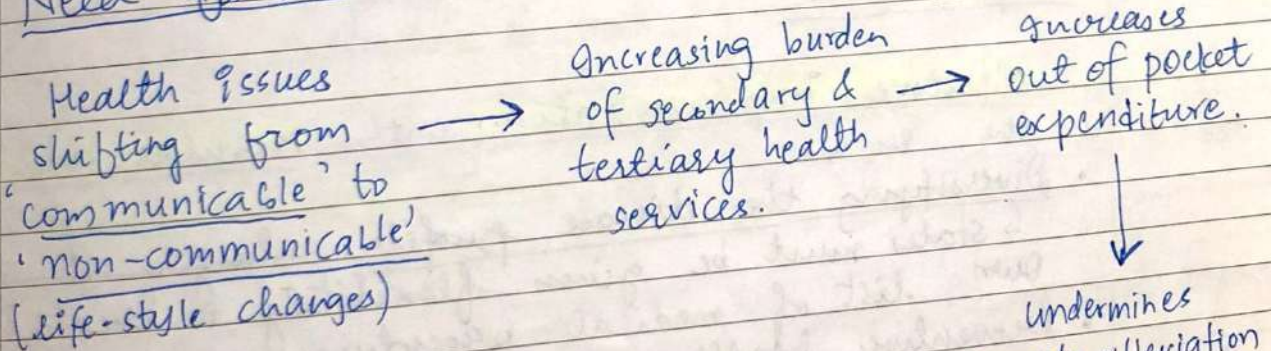 Need
Health issues
shifting from
'communicable' to
'non-communicable'
(life-style changes)
→
Increasing burden
of secondary &
tertiary health
services.
→
Increases
out of pocket
expenditure.
↓
undermines
alleviation